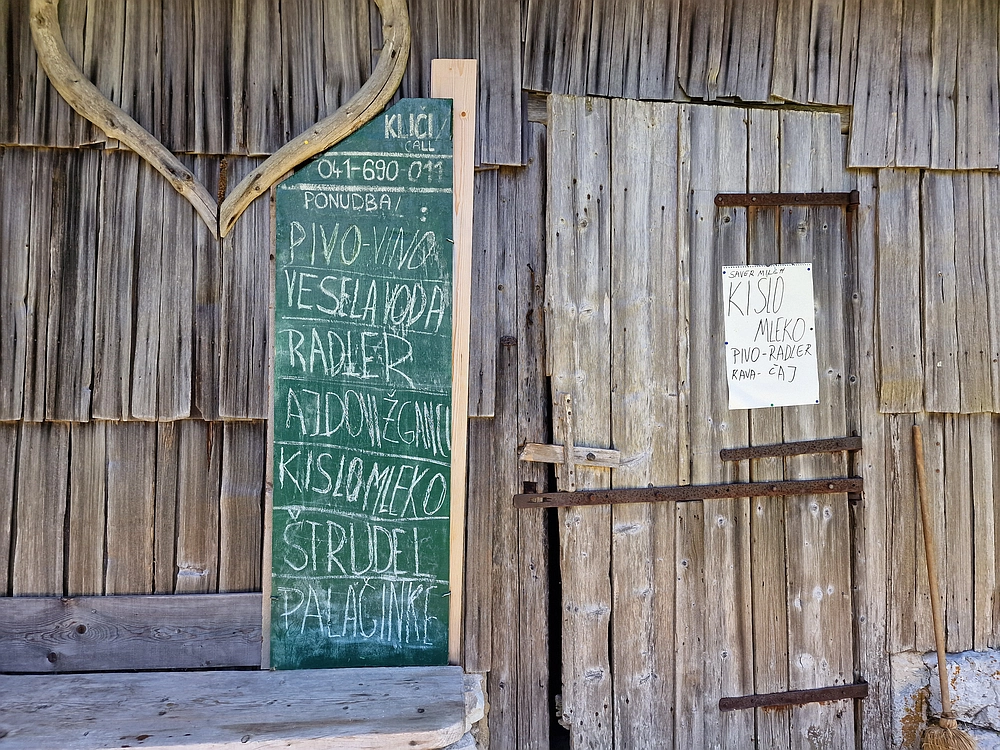 KLIČI/
CALL
041-690-011
PONUDBA/:
PIVO-VINO
VESELA VODA
RADLER
AJDOVI ŽGANCI
KISLO MLEKO
ŠTRUDEL
PALAČINKE
SAVER MILCH
KISLO
MLEKO
PIVO-RADLER
KAVA- ČAJ